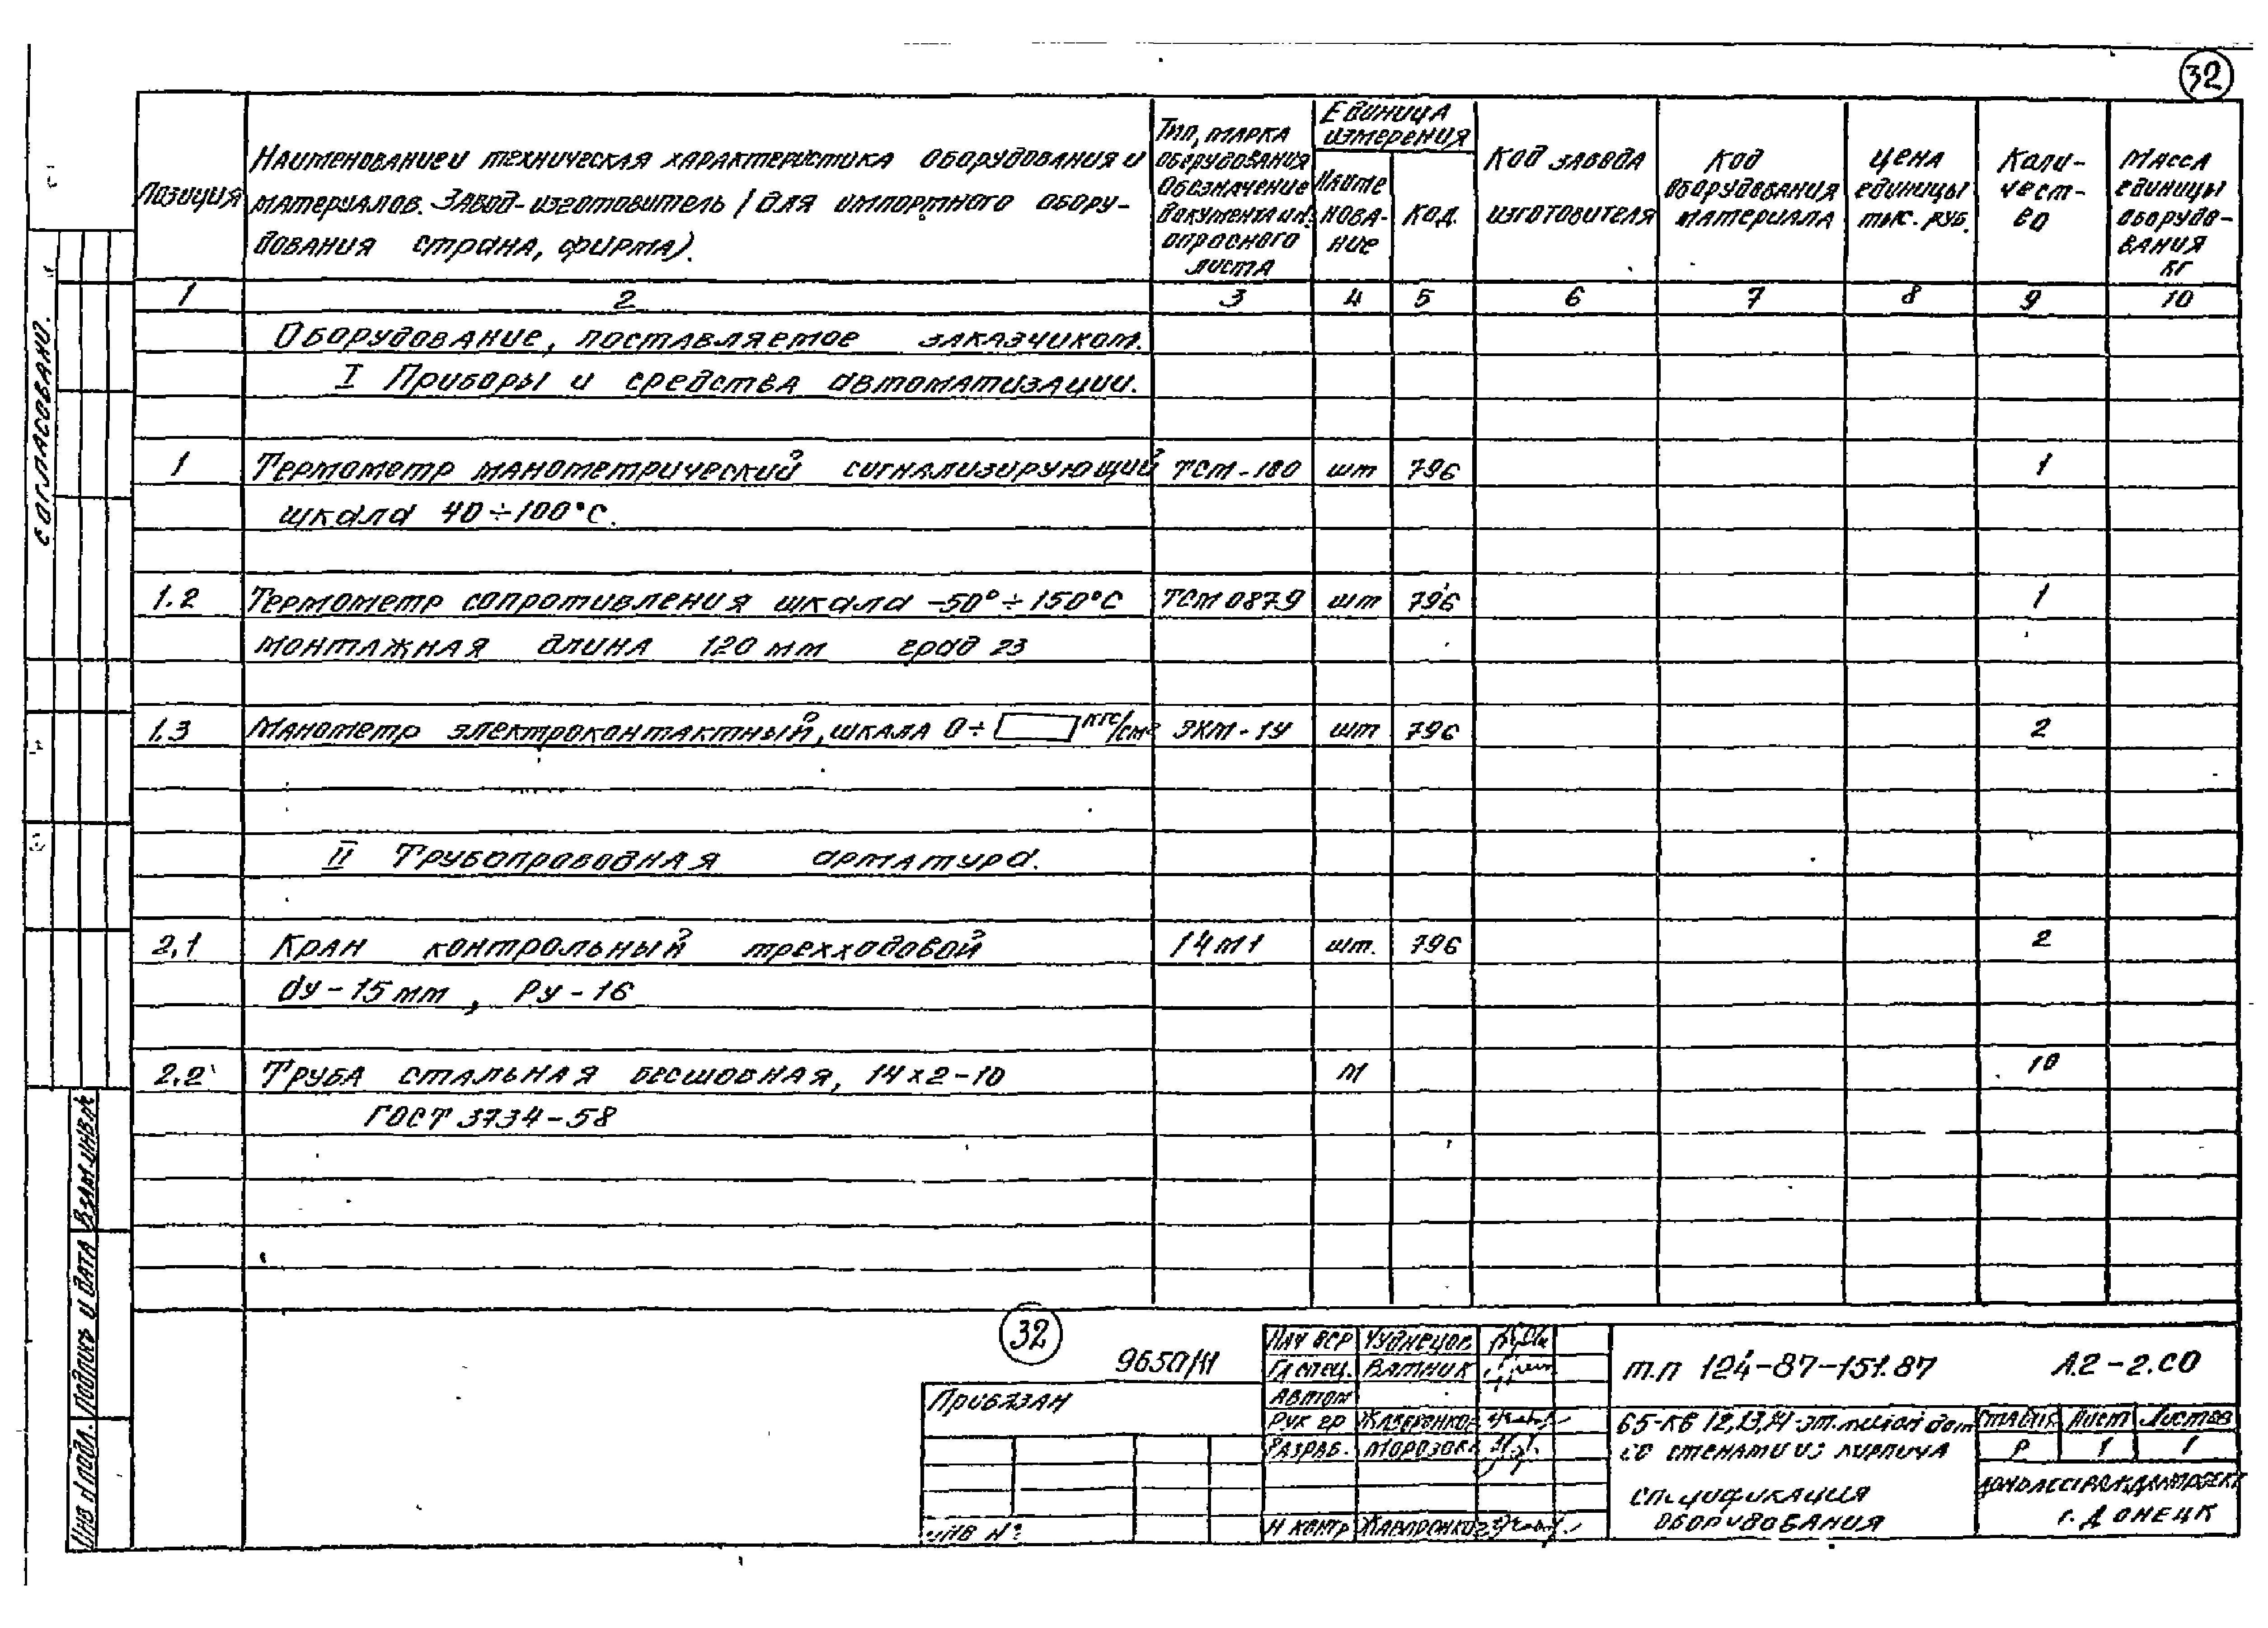 32
Позиция
Наименование и техническая характеристика оборудования и
материалов. Завод-изготовитель /для импортного обору-
дования страна, фирма).
Тип, марка
оборудования
Обозначение
документа и №
опросного
листа
Единица
измерения
Наиме
нова-
ние
Код.
Код завода
изготовителя
Код
оборудования
материала
Цена
единицы
тыс. руб.
Коли-
чест-
во
Масса
единицы
оборудо-
вания
кг
1 2 3 4 5 6 7 8 9 10
Оборудование, поставляемое заказчиком.
I Приборы и средства автоматизации.
1 Термометр манометрический сигнализирующий ТСМ-100 шт 796 1
шкала 40÷100°С.
1.2 Термометр сопротивления шкала -50°÷150°С ТСМ 0879 шт 796 1
монтажная длина 120 мм град 23
1.3 Манометр электроконтактный, шкала 0÷ кгс/см² ЭКМ-1У шт 796 2
II Трубопроводная арматура.
2,1 Кран контрольный трехходовой 14М1 шт. 796 2
dу-15мм, Ру-16
2.2 Труба стальная бесшовная, 14х2-10 м 10
ГОСТ 3734-58
Согласовано.
Взам инв.№
Подпись и дата
Инв № подл.
32
9650/III
Привязан
Инв №
Нач ОСР
Гл спец. Ватник
Автом
Рук гр Жаворонков
Разраб. Морозова
Н контр Жаворонков
т.п 124-87-151.87
А.2-2.СО
65-кв 12,13,14-эт. жилой дом
со стенами из кирпича
Стадия Лист Листов
Р 1 1
Спецификация
оборудования
Донбассгражданпроект
г. Донецк